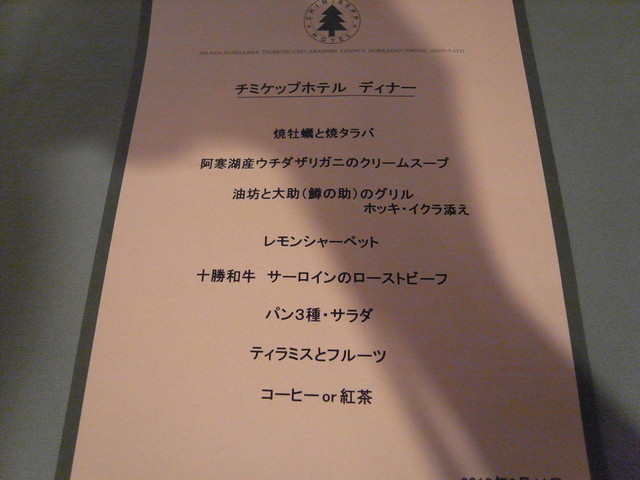 CHIMIKEPP
HOTEL
チミケップホテル　ディナー
焼牡蠣と焼タラバ
阿寒湖産ウチダザリガニのクリームスープ
油坊と大助（鱒の助）のグリル
ホッキ・イクラ添え
レモンシャーベット
十勝和牛　サーロインのローストビーフ
パン３種・サラダ
ティラミスとフルーツ
コーヒー or 紅茶